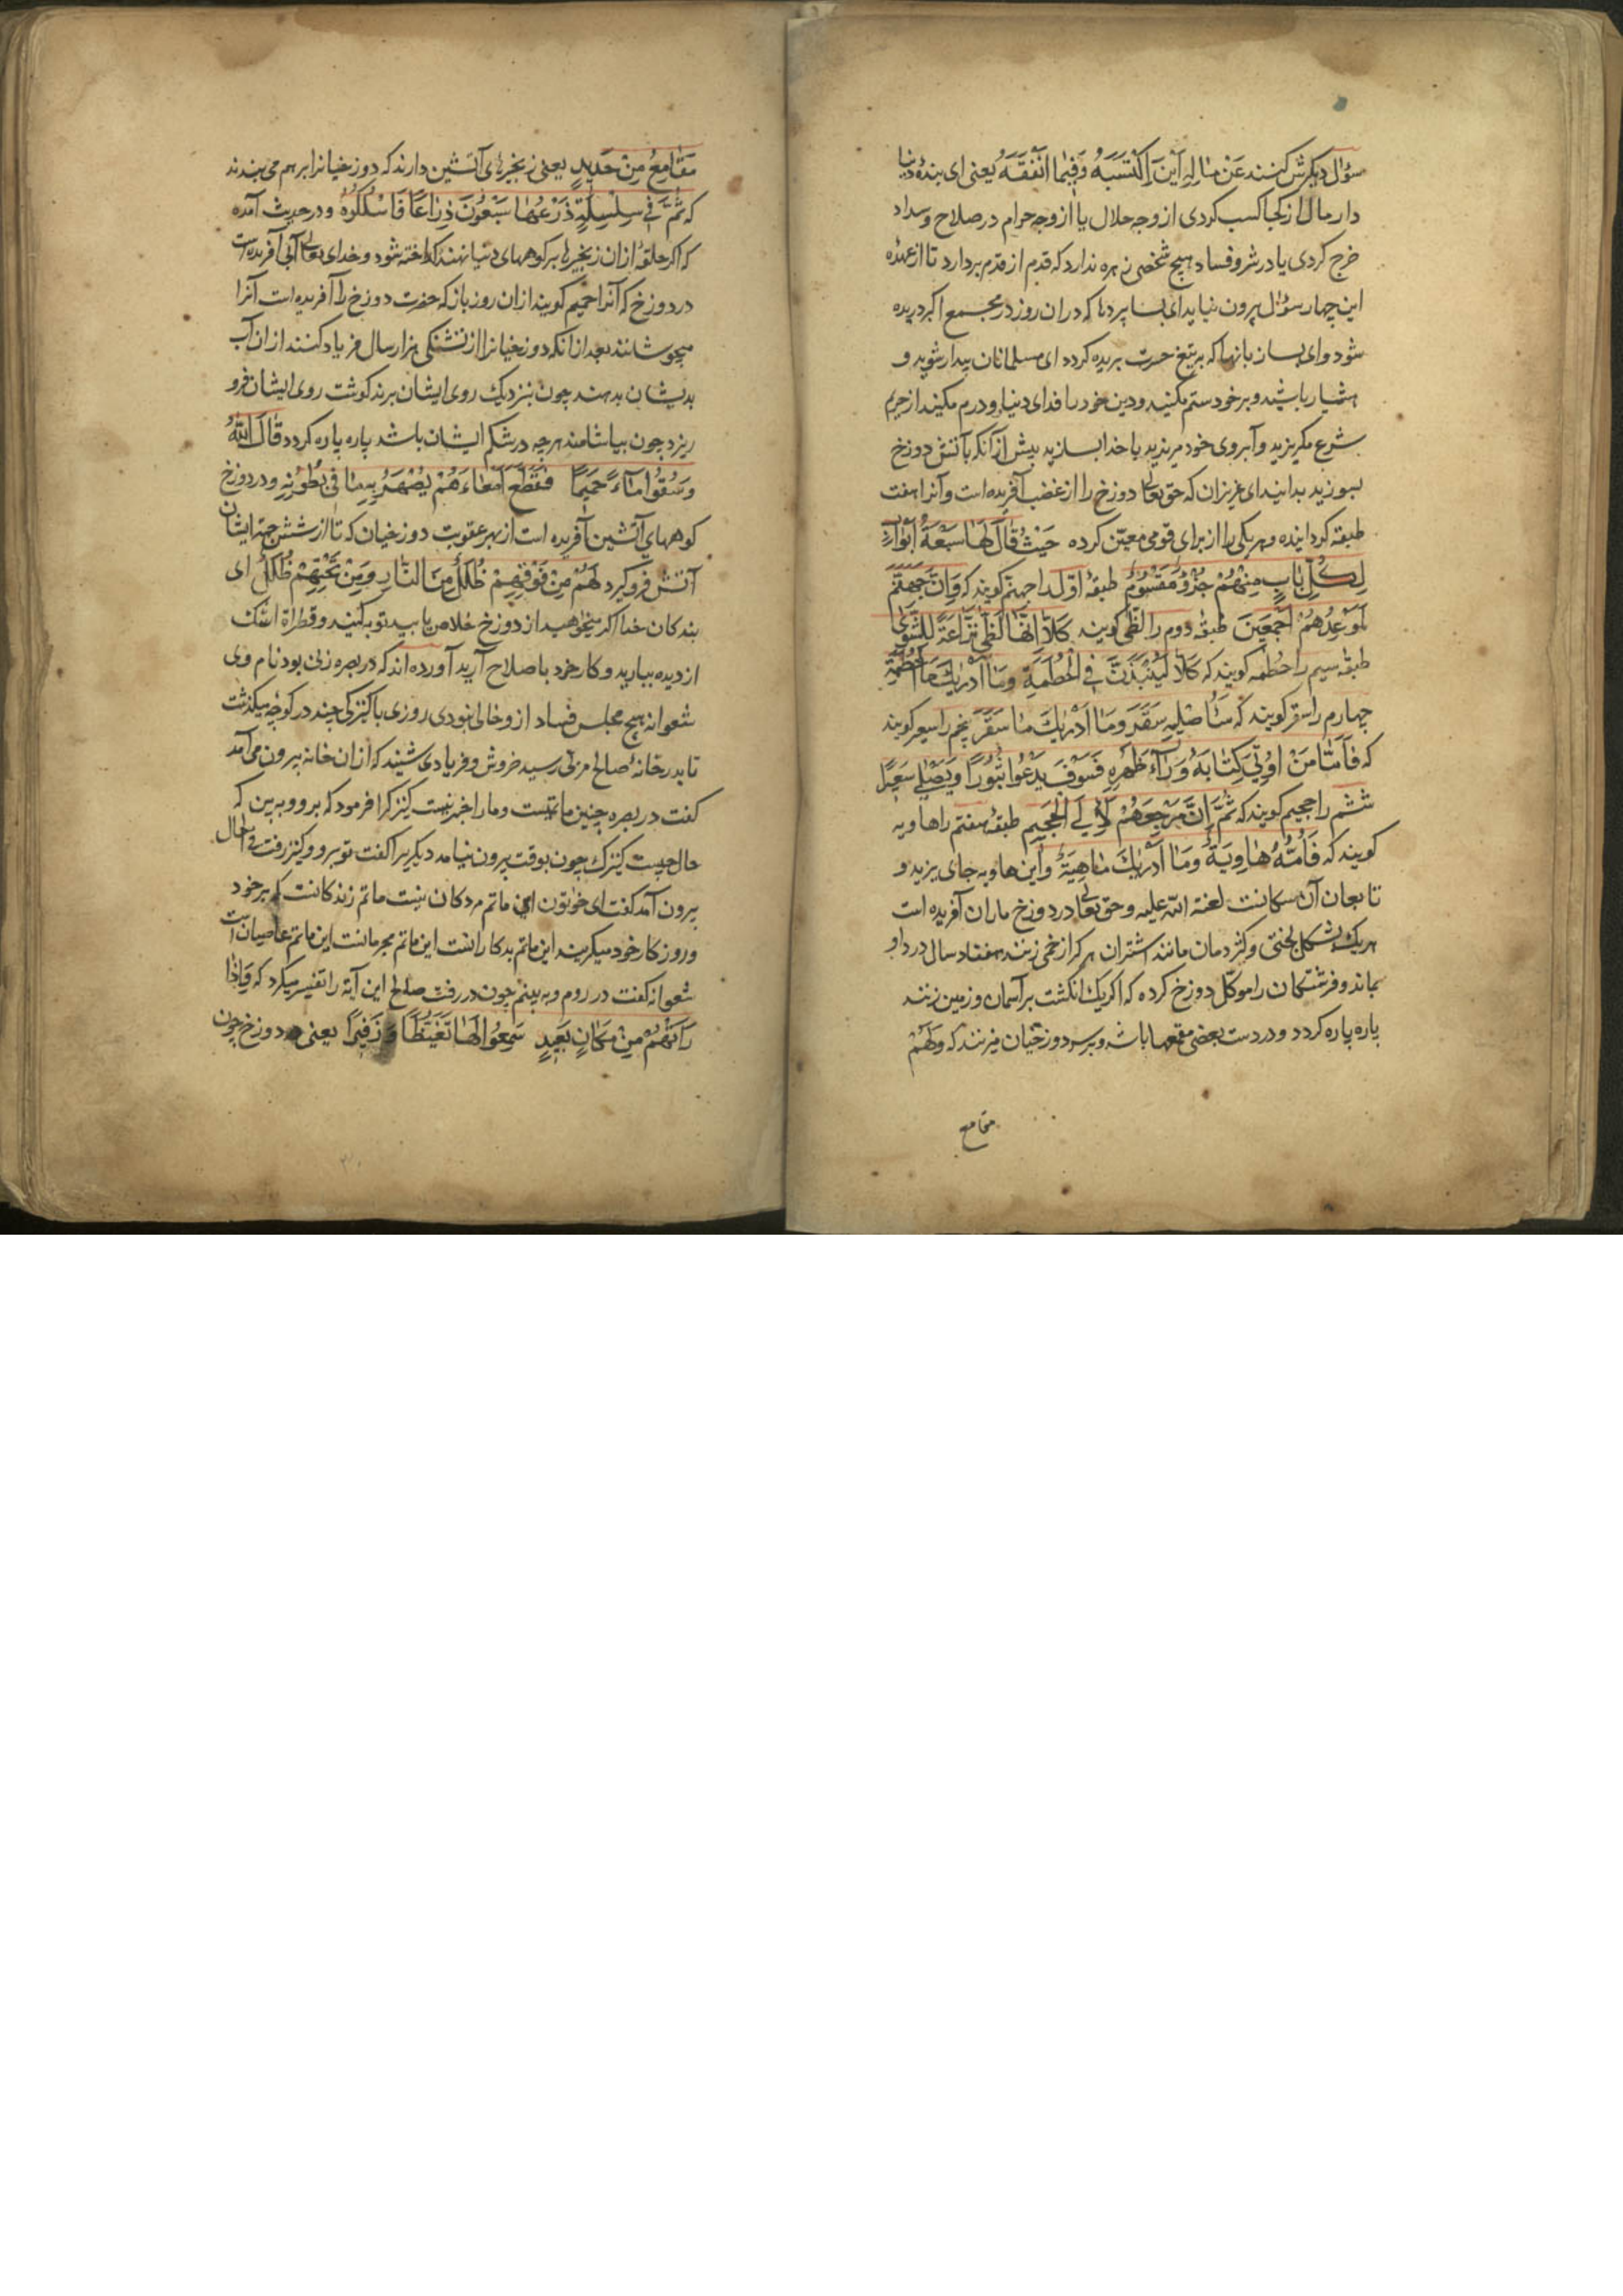 سؤال دیکرش کنند عَنْ مٰالِهِ اَیْنَ اِکْتَسَبَهُ وَفِیمٰا اَنْفَقَهُ یعنی ای بندۀ دنیا
دار مال از کجا کسب کردی از وجه حلال یا از وجه حرام در صلاح و سداد
خرج کردی یا در شر و فساد هیچ شخصی زهره ندارد که قدم از قدم بردارد تا از عهدۀ
این چهار سؤال بیرون نیاید ای بسا پردها که دران روز در مجمع اکبر دریده
شود و ای بسا زبانها که بتیغ حسرت بریده کردد ای مسلمانان بیدار شوید و
هشیار باشید و بر خود ستم مکنید و دین خود را فدای دنیا و درم مکنید از حریم
شرع مکریزید و آبروی خود مریزید با خدا بسازید پیش از آنکه بآتش دوزخ
بسوزید بدانید ای عزیزان که حق تعالی دوزخ را از غضب آفریده است و آنرا هفت
طبقه کردانیده و هر یکی را از برای قومی معیّن کرده حَیْثُ قٰالَ لَهٰا سَبْعَةُ اَبْوٰابٍ
لِکُلِّ بٰابٍ مِنْهُمْ جُزْءٌ مَقْسُومٌ طبقۀ اوّل را جهنّم کویند که وَاِنَّ جَهَنَّمَ
لَمَوْعِدُهُمْ اَجْمَعِینَ طبقه دوم را لظی کویند کَلّٰا اِنَّهٰا لَظٰی نَزّٰاعَةً لِلشَّوٰی
طبقۀ سیم را حُطَمه کویند که کَلّٰا لَیُنْبَذَنَّ فِی الْحُطَمَةِ وَمٰا اَدْرٰیكَ مَا الْحُطَمَةُ
چهارم را سقر کویند که سَاُصْلِیهِ سَقَرَ وَمٰا اَدْرٰیكَ مٰا سَقَرُ پنجم را سعیر کویند
که فَاَمّٰا مَنْ اُوتِیَ کِتٰابَهُ وَرٰآءَ ظَهْرِهِ فَسَوْفَ یَدْعُوا ثُبُورًا وَیَصْلٰی سَعِیرًا
ششم را جحیم کویند که ثُمَّ اِنَّ مَرْجِعَهُمْ لَاِلَی الْجَحِیمِ طبقۀ هفتم را هاویه
کویند که فَاُمُّهُ هٰاوِیَةٌ وَمٰا اَدْرٰیكَ مٰا هِیَهْ و این هاویه جای یزید و
تابعان آن سکانست لعنة اللّه علیه و حق تعالی در دوزخ ماران آفریده است
هریك بشکل بختی و کژدمان مانند اشتران هر کرا زخمی زنند هفتاد سال درد او
بماند و فرشتکان را موکّل دوزخ کرده که اکر یك انکشت بر آسمان و زمین زنند
پاره پاره کردد و در دست بعضی مقمعها باشد و بر سر دوزخیان میزنند که وَلَهُمْ
مقامع
مَقٰامِعُ مِنْ حَدِیدٍ یعنی زنجیرهای آتشین دارند که دوزخیانرا بر هم می بندند
که ثُمَّ فِی سِلْسِلَةٍ ذَرْعُهٰا سَبْعُونَ ذِرٰاعًا فَاسْلُکُوهُ و در حدیث آمده
که اکر حلقۀ ازان زنجیرها بر کوههای دنیا نهند کداخته شود و خدای تعالی آبی آفریده است
در دوزخ که آنرا حمیم کویند ازان روز باز که حضرت دوزخ را آفریده است آنرا
میجوشانند بعد از آنکه دوزخیانرا از تشنکی هزار سال فریاد کنند ازان آب
بدیشان بدهند چون بنزدیك روی ایشان برند کوشت روی ایشان فرو
ریزد چون بیاشامند هرچه در شکم ایشان باشد پاره پاره کردد قٰالَ اللّٰهُ
وَسُقُوا مٰآءً حَمِیمًا فَقَطَّعَ اَمْعٰآءَهُمْ یُصْهَرُ بِهِ مٰا فِی بُطُونِهِ و در دوزخ
کوههای آتشین آفریده است از بهر عقوبت دوزخیان که تا از شش جهت ایشان
آتش فرو کیرد لَهُمْ مِنْ فَوْقِهِمْ ظُلَلٌ مِنَ النّٰارِ وَمِنْ تَحْتِهِمْ ظُلَلٌ ای
بندکان خدا اکر میخواهید از دوزخ خلاص یابید توبه کنید و قطراة اشك
از دیده ببارید و کار خود باصلاح آرید آورده اند که در بصره زنی بود نام وی
شعوانه هیچ مجلس فساد از وخالی نبودی روزی باکنیزکی چند در کوچه میکذشت
تا بدر خانۀ صالح مرّی رسید خروش و فریادی شنید که ازان خانه بیرون می آمد
کفت در بصره چنین ماتمیست و مارا خبر نیست کنیزکرا فرمود که برو و به بین که
حال چیست کنیزك چون بوقت بیرون نیامد دیکریرا کفت تو برو و کنیز رفت فی الحال
بیرون آمد کفت ای خوتون این ماتم مردکان نیست ماتم زندکانست که بر خود
و روزکار خود میکریند این ماتم بدکارانست این ماتم مجرمانست این ماتم عاصیان است
شعوانه کفت در روم و به بینم چون در رفت صالح این آیة را تفسیر میکرد که وَاِذٰا
رَاَتْهُمْ مِنْ مَکٰانٍ بَعِیدٍ سَمِعُوا لَهٰا تَغَیُّظًا وَ زَفِیرًا یعنی دوزخ چون